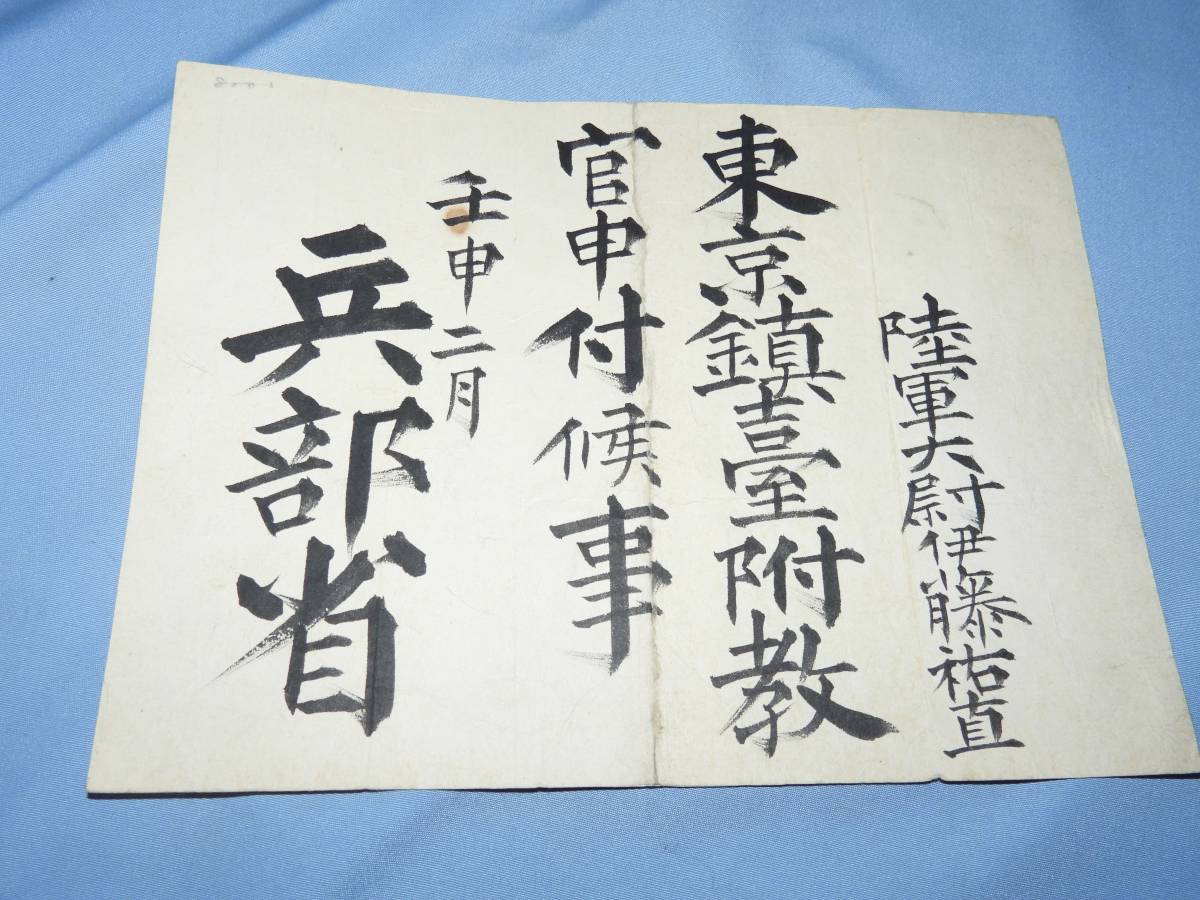 陸軍大尉伊藤祐直
東京鎮臺附教
官申付候事
壬申二月
兵部省